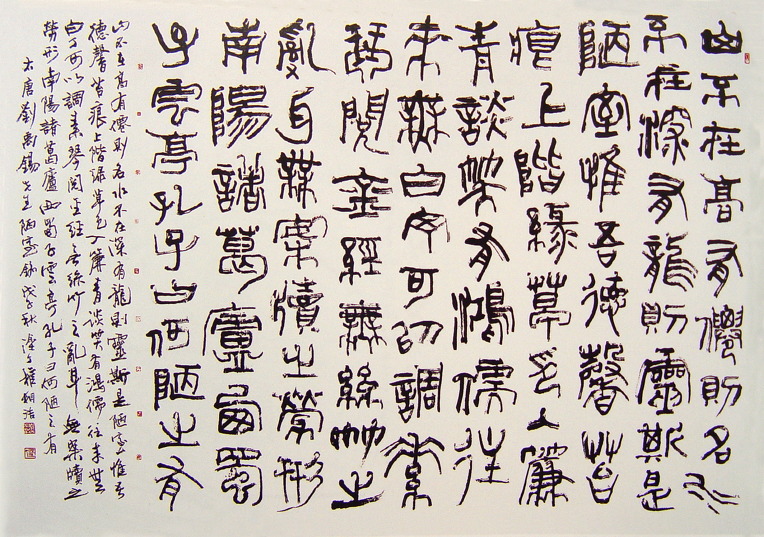 山不在高有僊則名水
不在深有龍則靈斯是
陋室惟吾德馨苔
痕上階緣草色入簾
青談笑有鴻儒往
來無白丁可以調素
琴閱金經無絲竹之
亂耳無案牘之勞形
南陽諸葛廬西蜀
子雲亭孔子曰何陋之有
山不在高有僊則名水不在深有龍則靈斯是陋室惟吾
德馨苔痕上階緑草色入簾青談笑有鴻儒往来無
白丁可以調素琴閱金經無絲竹之亂耳無案牘之
勞形南陽諸葛廬西蜀子雲亭孔子曰何陋之有
大唐劉禹錫先生陋室銘戊子秋